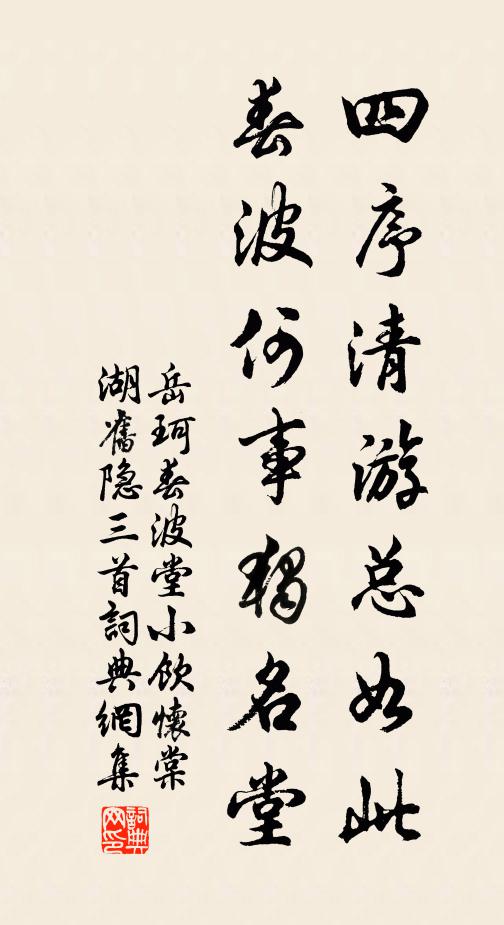 四序清游总如此
春波何事独名堂
岳珂春波堂小饮懷棠
湖舊隐三首詞典網集
詞典網印